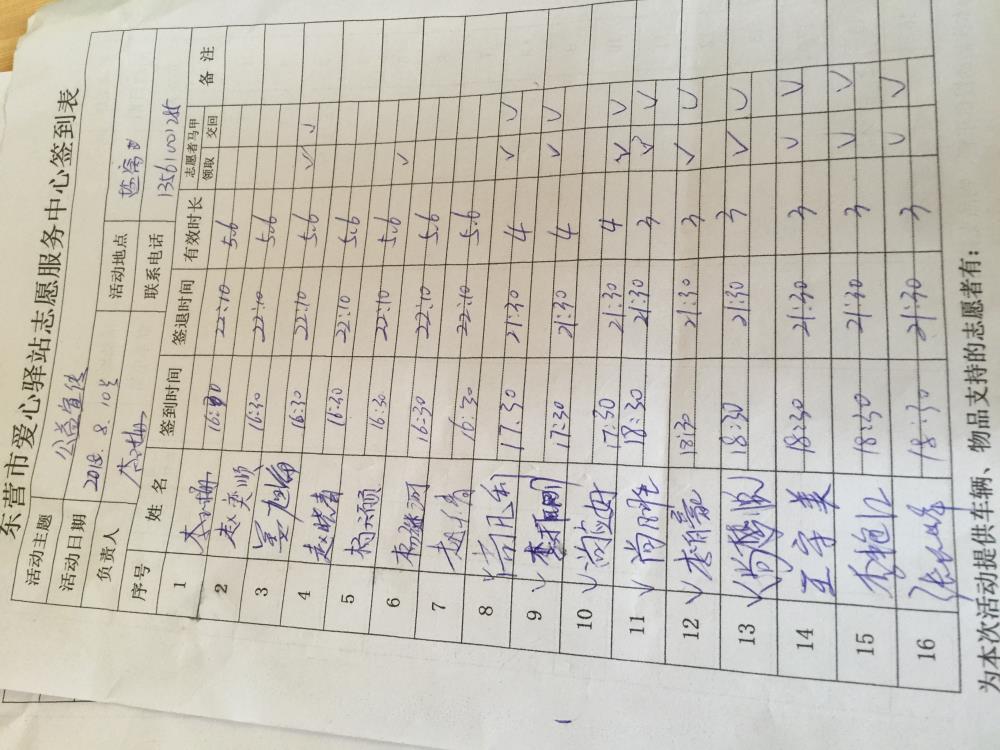 东营市爱心驿站志愿服务中心签到表
活动主题 公益宣传 活动地点
活动日期 2018.8.10号 联系电话 13561001285
负责人
序号 姓名 签到时间 签退时间 有效时长 志愿者马甲 领取 交回 备注
1 16:30 22:10 5.6
2 赵奕顺 16:30 22:10 5.6
3 16:30 22:10 5.6 √ √
4 赵晓青 16:30 22:10 5.6
5 杨硕 16:30 22:10 5.6 √
6 16:30 22:10 5.6
7 赵倩 16:30 22:10 5.6
8 √ 17:30 21:30 4 √ √
9 √ 17:30 21:30 4 √ √
10 √ 17:30 21:30 4 √ √
11 √ 尚胜 18:30 21:30 3 √ √
12 √ 18:30 21:30 3 √ √
13 √ 18:30 21:30 3 √ √
14 王守美 18:30 21:30 3 √ √
15 18:30 21:30 3 √ √
16 18:30 21:30 3 √ √
为本次活动提供车辆、物品支持的志愿者有: